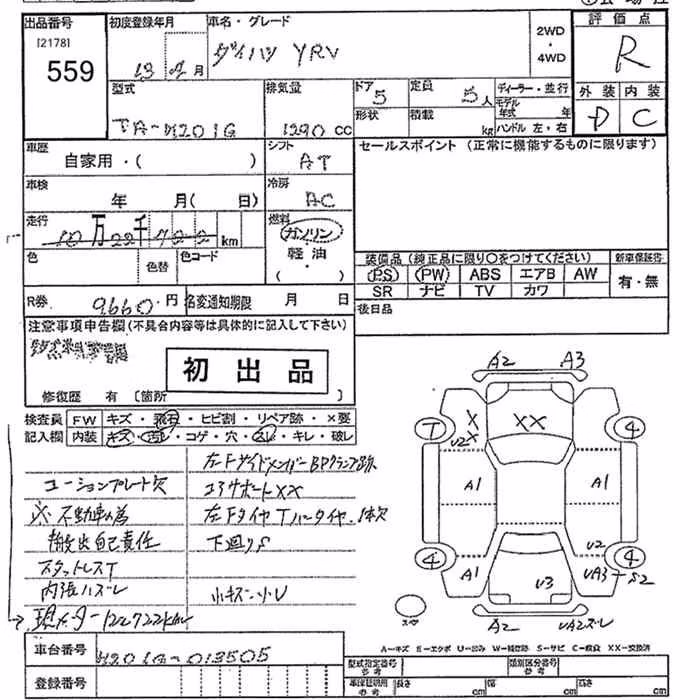 出品番号
[2178]
559
初度登録年月
13年月
車名・グレード
ダイハツ YRV
2WD
・
4WD
評価点
R
外装 内装
D C
型式
TA-M201G
排気量
1290 CC
ドア 5
形状
定員 5人
積載 kg
ディーラー・並行
モデル年式 年
ハンドル 左・右
車歴 自家用・( )
シフト AT
セールスポイント (正常に機能するものに限ります)
車検 年 月( 日)
冷房 AC
走行 10万22千722km
燃料 ガソリン
軽油
( )
色 色替 色コード
装備品 (純正品に限り○をつけてください)
PS PW ABS エアB AW
SR ナビ TV カワ
新車保証書
有・無
R券 9660円
名変通知期限 月 日
後日品
注意事項申告欄(不具合内容等は具体的に記入して下さい)
初出品
修復歴 有 [箇所 ]
検査員記入欄
FW キズ・飛石・ヒビ割・リペア跡・×要
内装 キズ・汚レ・コゲ・穴・スレ・キレ・破レ
左FサイドメンバーBPクランプ跡
コーションプレート欠
コアサポートXX
※不動車の為
左FタイヤTパータイヤ、1本欠
搬出自己責任
下廻りS
スタットレスT
内張ハズレ
小キズ・小U
→現メーター122722km
A2 A3
T X X U2 XX 4
A1 A1
U2
4 A1 U3 UA3 S2 4
A2 UA2ズレ
スペア
A-キズ E-エクボ U-凹み W-補修跡 S-サビ C-腐食 XX-交換済
車台番号 M201G-013505
登録番号
型式指定番号 参考
類別区分番号 参考
車検証明用 参考
長さ cm
幅 cm
高さ cm